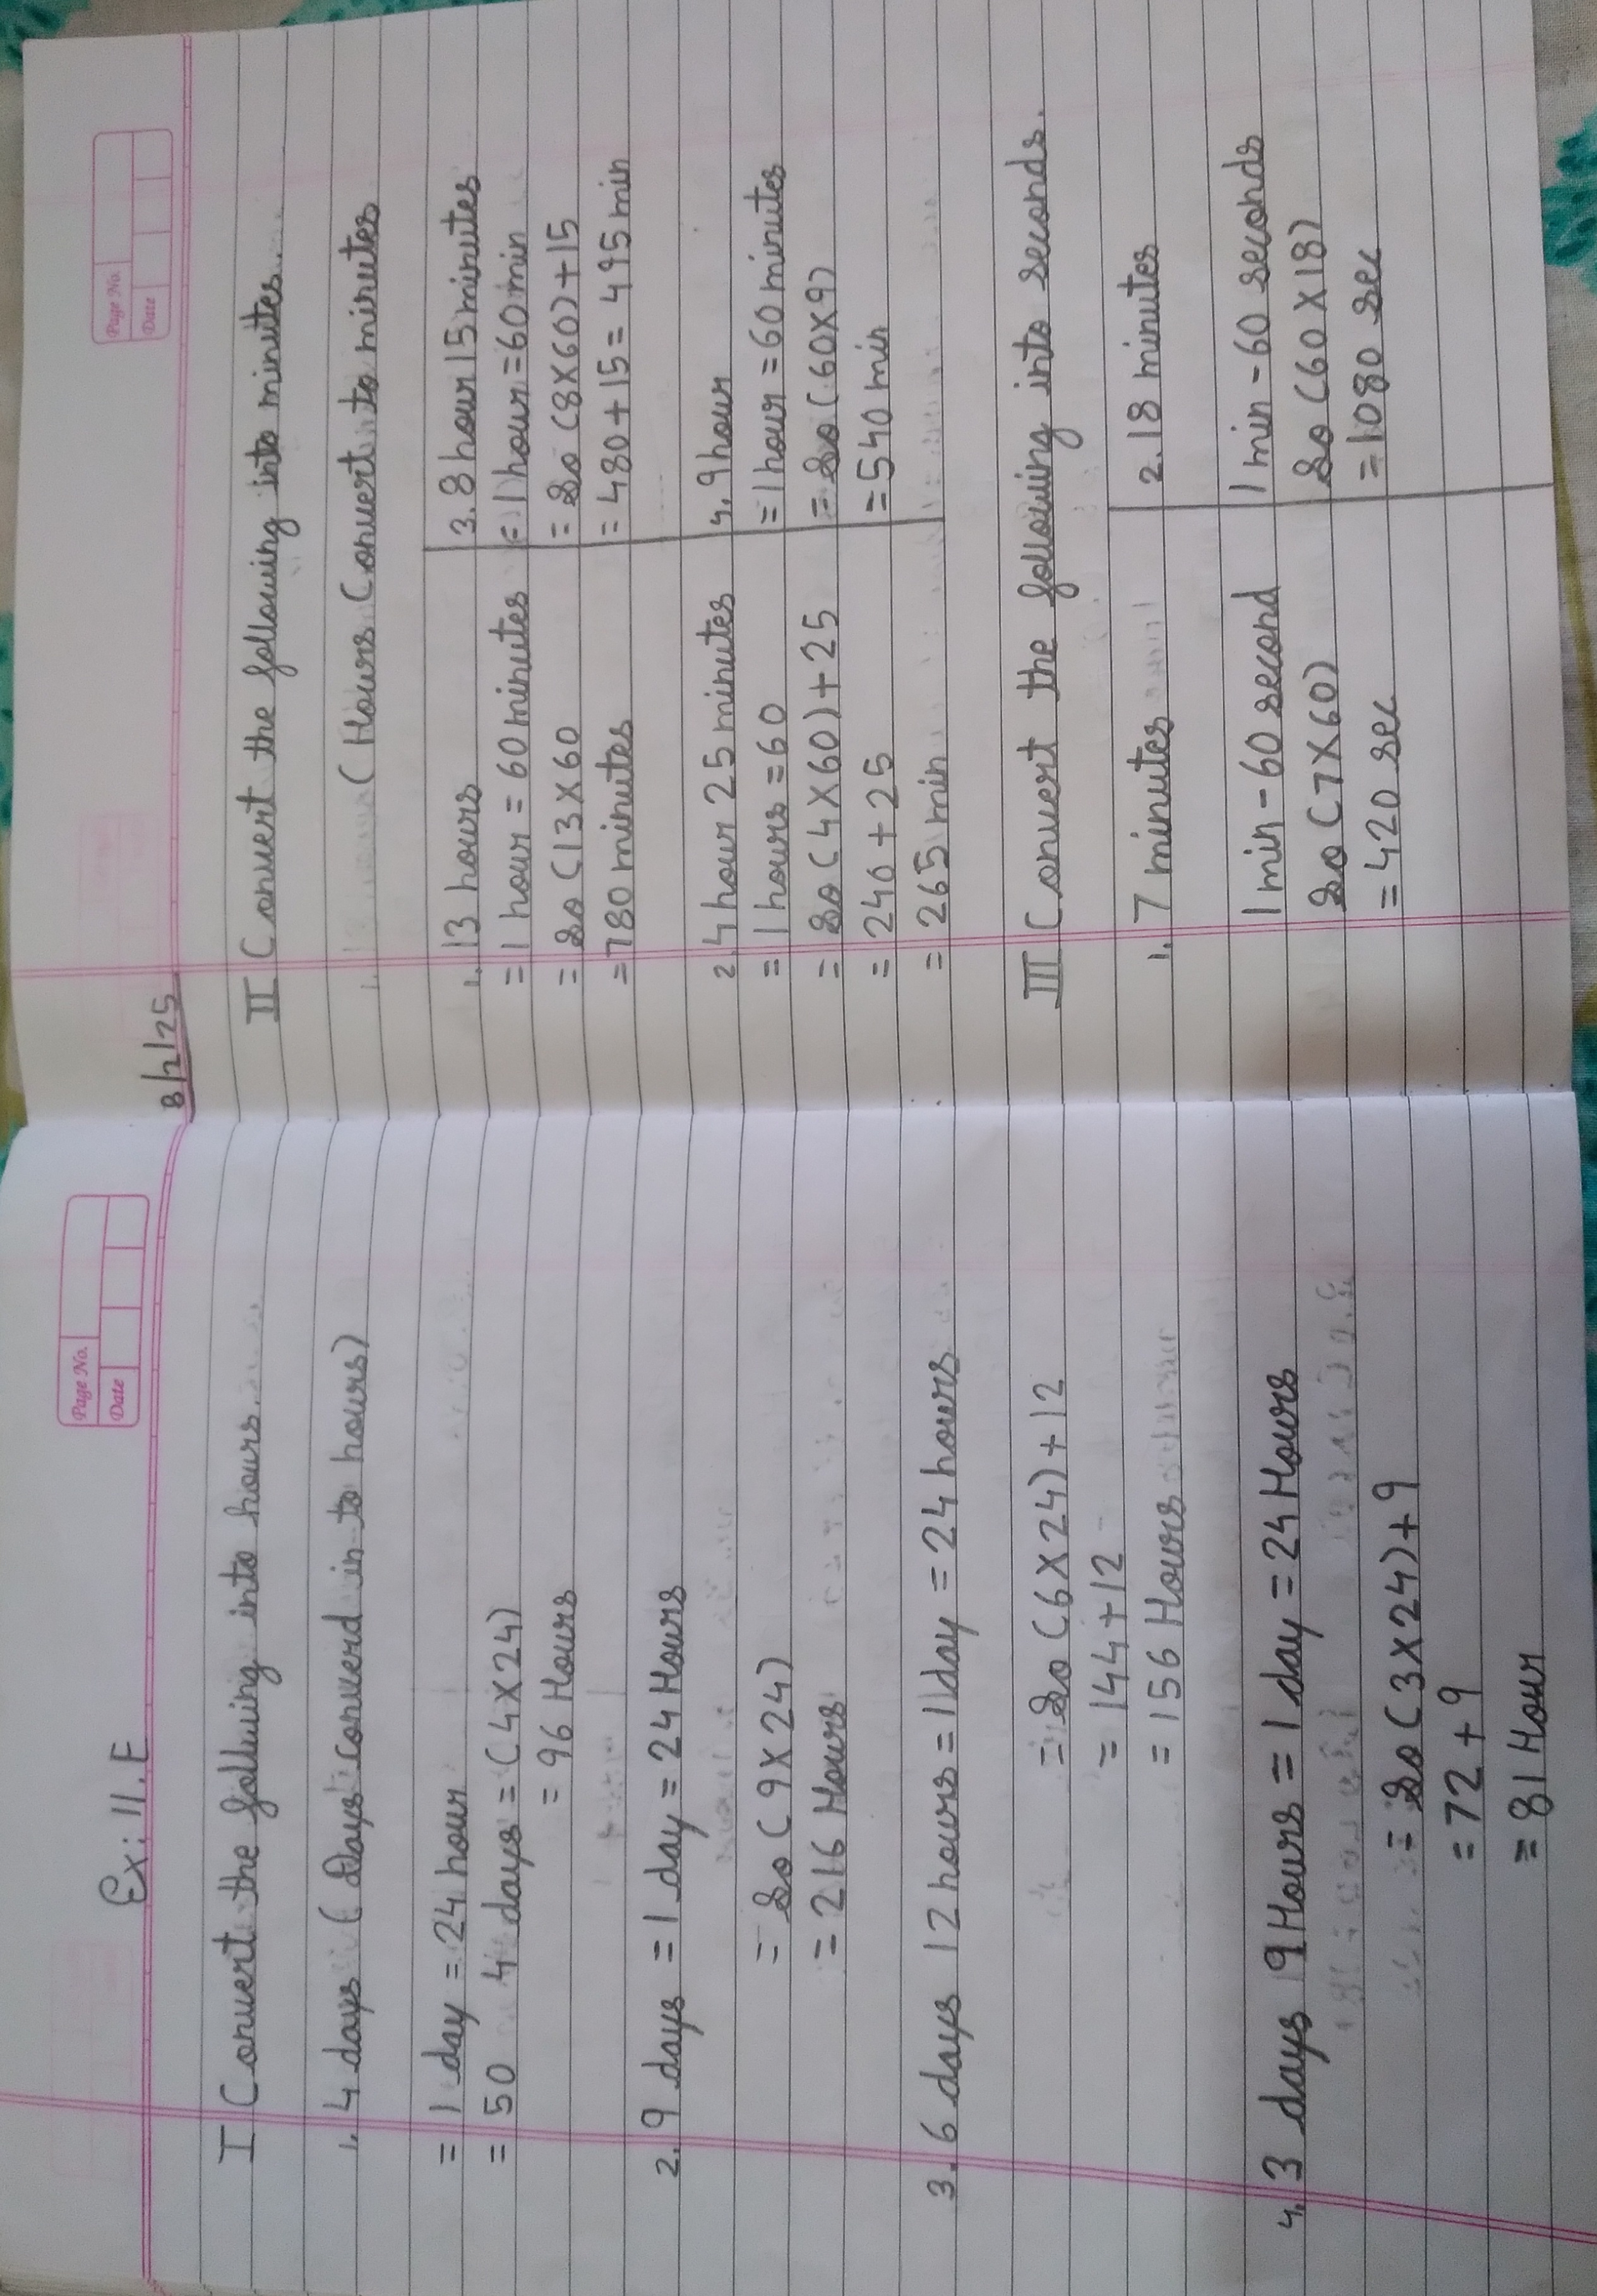 Page No.
Date
Ex: 11.F
I Convert the following into hours.
1. 4 days (Days converd in to hours)
= 1 day = 24 hour
= 50 4 days = (4×24)
= 96 Hours
2. 9 days = 1 day = 24 Hours
= So (9×24)
= 216 Hours
3. 6 days 12 hours = 1 day = 24 hours
= So (6×24)+12
= 144+12
= 156 Hours
4. 3 days 9 Hours = 1 day = 24 Hours
= So (3×24)+9
= 72+9
= 81 Hour
Page No.
Date
8/2/25
II Convert the following into minutes.
(Hours Convert to minutes
1. 13 hours
= 1 hour = 60 minutes
= So (13×60
= 780 minutes
2. 4 hour 25 minutes
= 1 hours = 60
= So (4×60)+25
= 240+25
= 265 min
3. 8 hour 15 minutes
= 1 hour = 60 min
= So (8×60)+15
= 480+15 = 495 min
4. 9 hour
= 1 hour = 60 minutes
= So (60×9)
= 540 min
III Convert the following into seconds.
1. 7 minutes
1 min - 60 second
So (7×60)
= 420 sec
2. 18 minutes
1 min - 60 seconds
So (60×18)
= 1080 sec